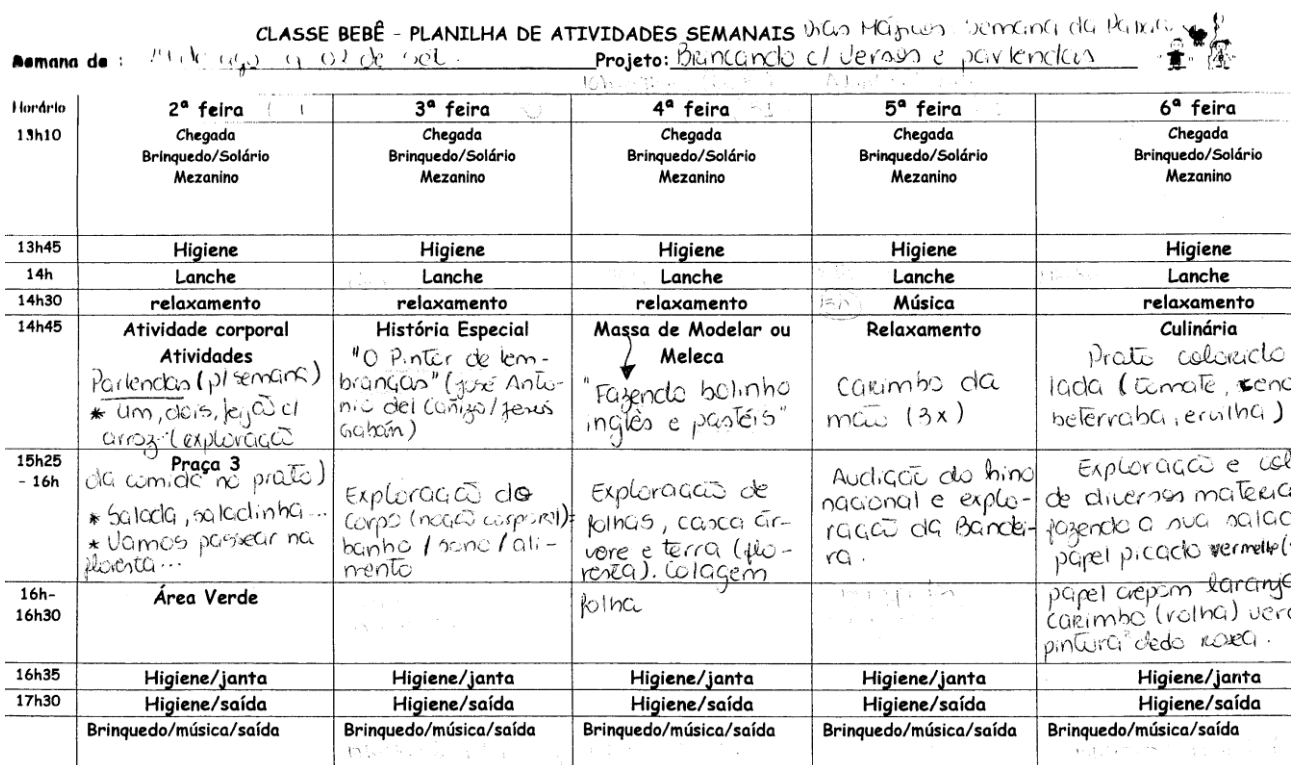 CLASSE BEBÊ - PLANILHA DE ATIVIDADES SEMANAIS Dias Mágicos: Semana da
Semana de: a 02 de set. Projeto: Brincando c/ versos e parlendas
Horário 2ª feira 3ª feira 4ª feira 5ª feira 6ª feira
13h10 Chegada Chegada Chegada Chegada Chegada
Brinquedo/Solário Brinquedo/Solário Brinquedo/Solário Brinquedo/Solário Brinquedo/Solário
Mezanino Mezanino Mezanino Mezanino Mezanino
13h45 Higiene Higiene Higiene Higiene Higiene
14h Lanche Lanche Lanche Lanche Lanche
14h30 relaxamento relaxamento relaxamento Música relaxamento
14h45 Atividade corporal
Atividades
Parlendas (p/ semana)
* um, dois, feijão c/
arroz (exploração
História Especial
"O Pintor de lem-
branças" (José Anto-
nio del Cañizo/Jesús
Gabán)
Massa de Modelar ou
Meleca
"Fazendo bolinho
inglês e pastéis"
Relaxamento
carimbo da
mão (3x)
Culinária
Prato colorido
lada (tomate, ceno
beterraba, ervilha)
15h25
- 16h
Praça 3
da comida no prato)
* Salada, saladinha...
* Vamos passear na
floresta...
Exploração do
corpo (noção corporal):
banho / sono / ali-
mento
Exploração de
folhas, casca ár-
vore e terra (flo-
resta). Colagem
Audição do hino
nacional e explo-
ração da Bandei-
ra.
Exploração e col
de diversos materia
fazendo a sua salad
papel picado vermelho (
16h-
16h30
Área Verde
folha
papel crepom laranja
carimbo (rolha) verd
pintura dedo roxa.
16h35 Higiene/janta Higiene/janta Higiene/janta Higiene/janta Higiene/janta
17h30 Higiene/saída Higiene/saída Higiene/saída Higiene/saída Higiene/saída
Brinquedo/música/saída Brinquedo/música/saída Brinquedo/música/saída Brinquedo/música/saída Brinquedo/música/saída